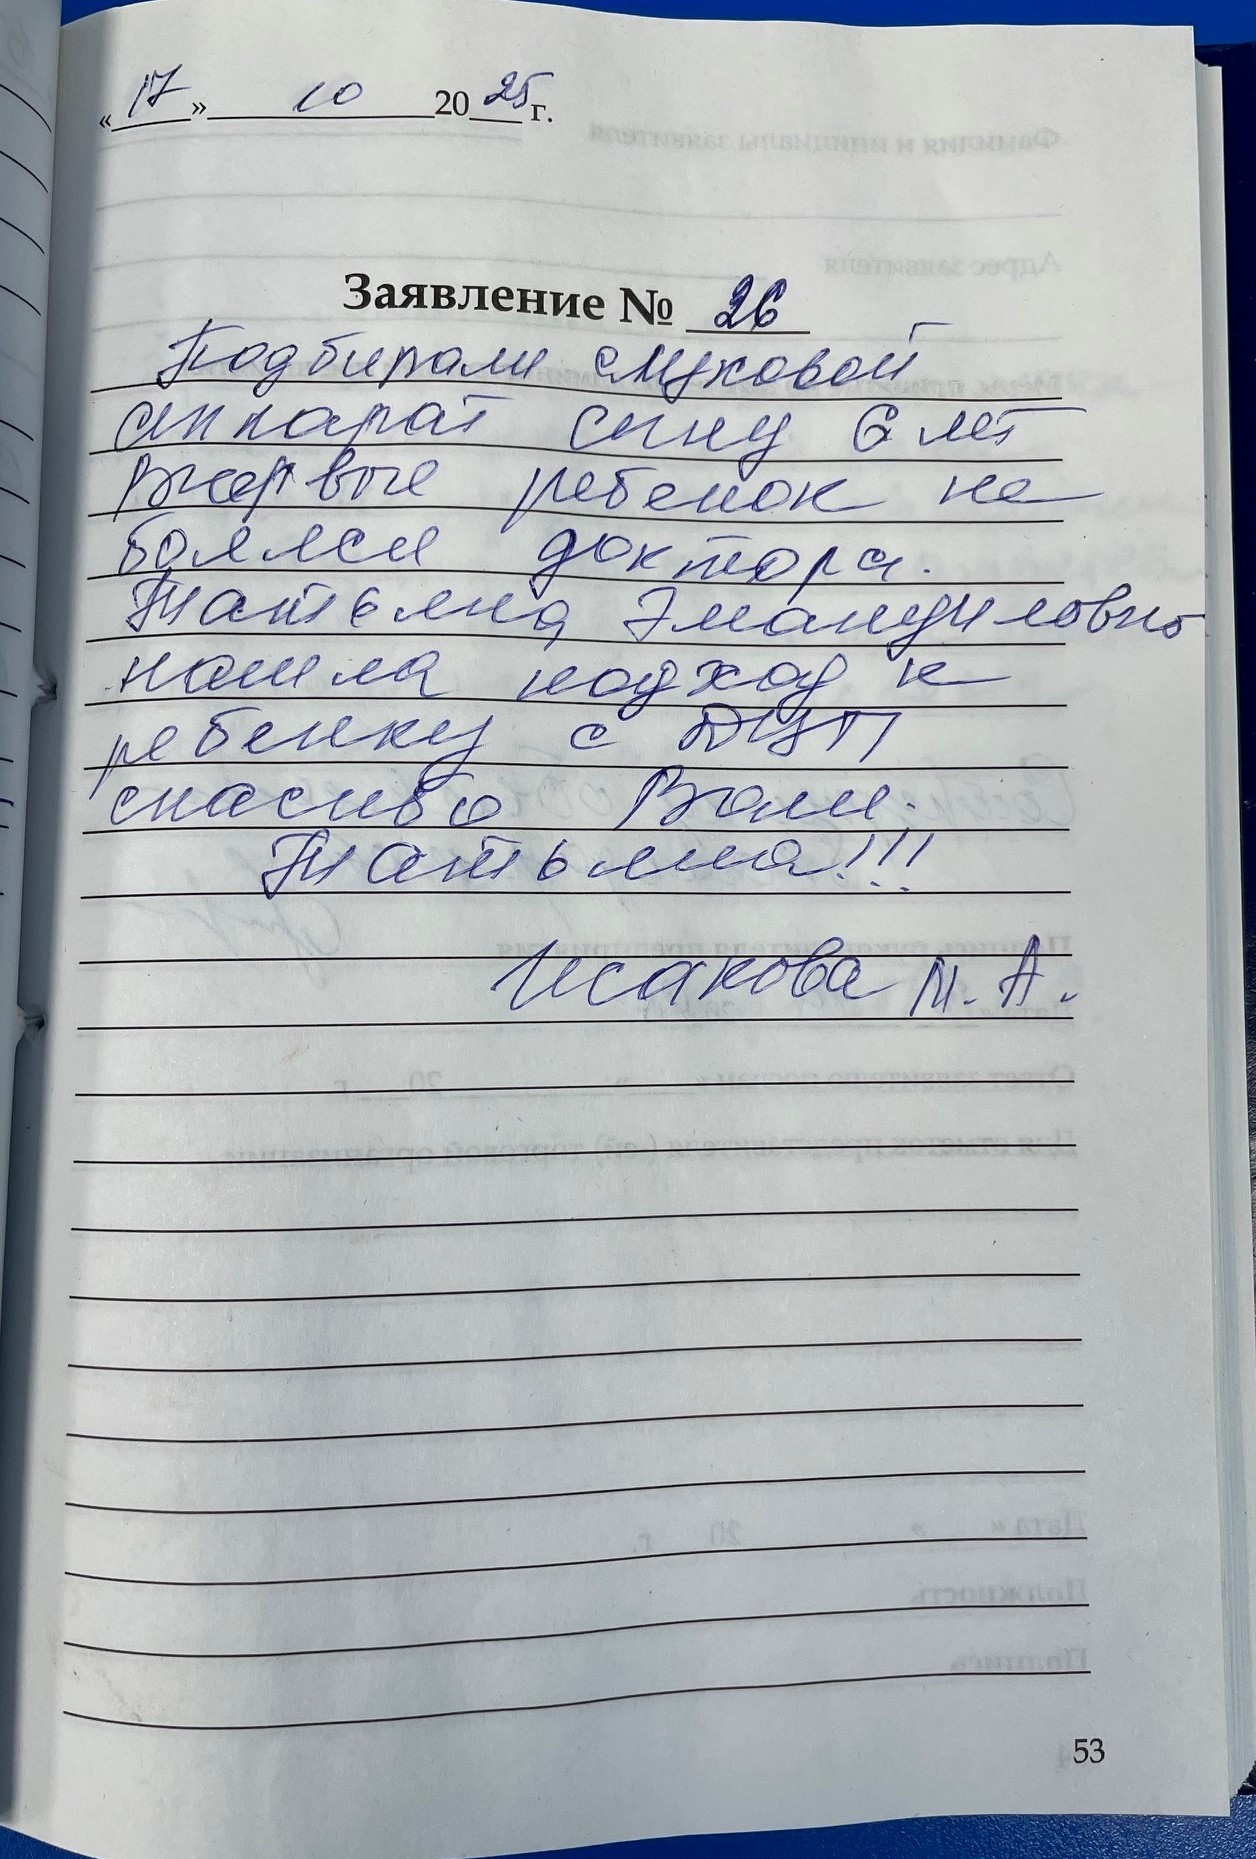 «17» 10 2025 г.
Заявление № 26
Подбирали слуховой
аппарат сыну 6 лет
Впервые ребенок не
боялся доктора.
Татьяна Эмануиловна
нашла подход к
ребенку с ДЦП
спасибо Вам.
Татьяна!!!
Исакова М. А.
53